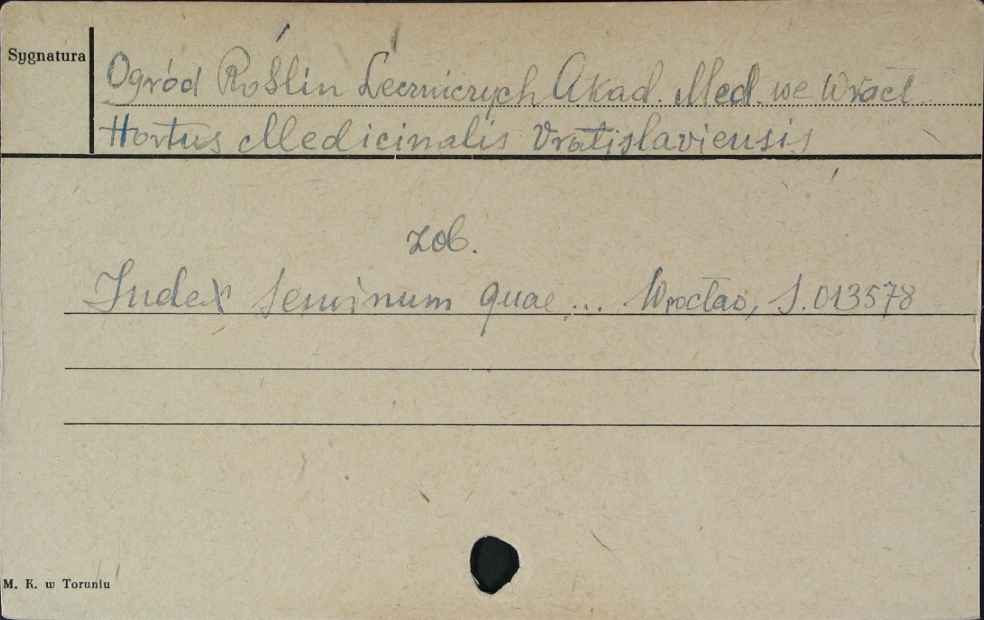 Sygnatura
Ogród Roślin Leczniczych Akad. Med. we Wrocł.
Hortus Medicinalis Vratislaviensis
zob.
Index seminum quae ... Wrocław, S.013578
M. K. w Toruniu